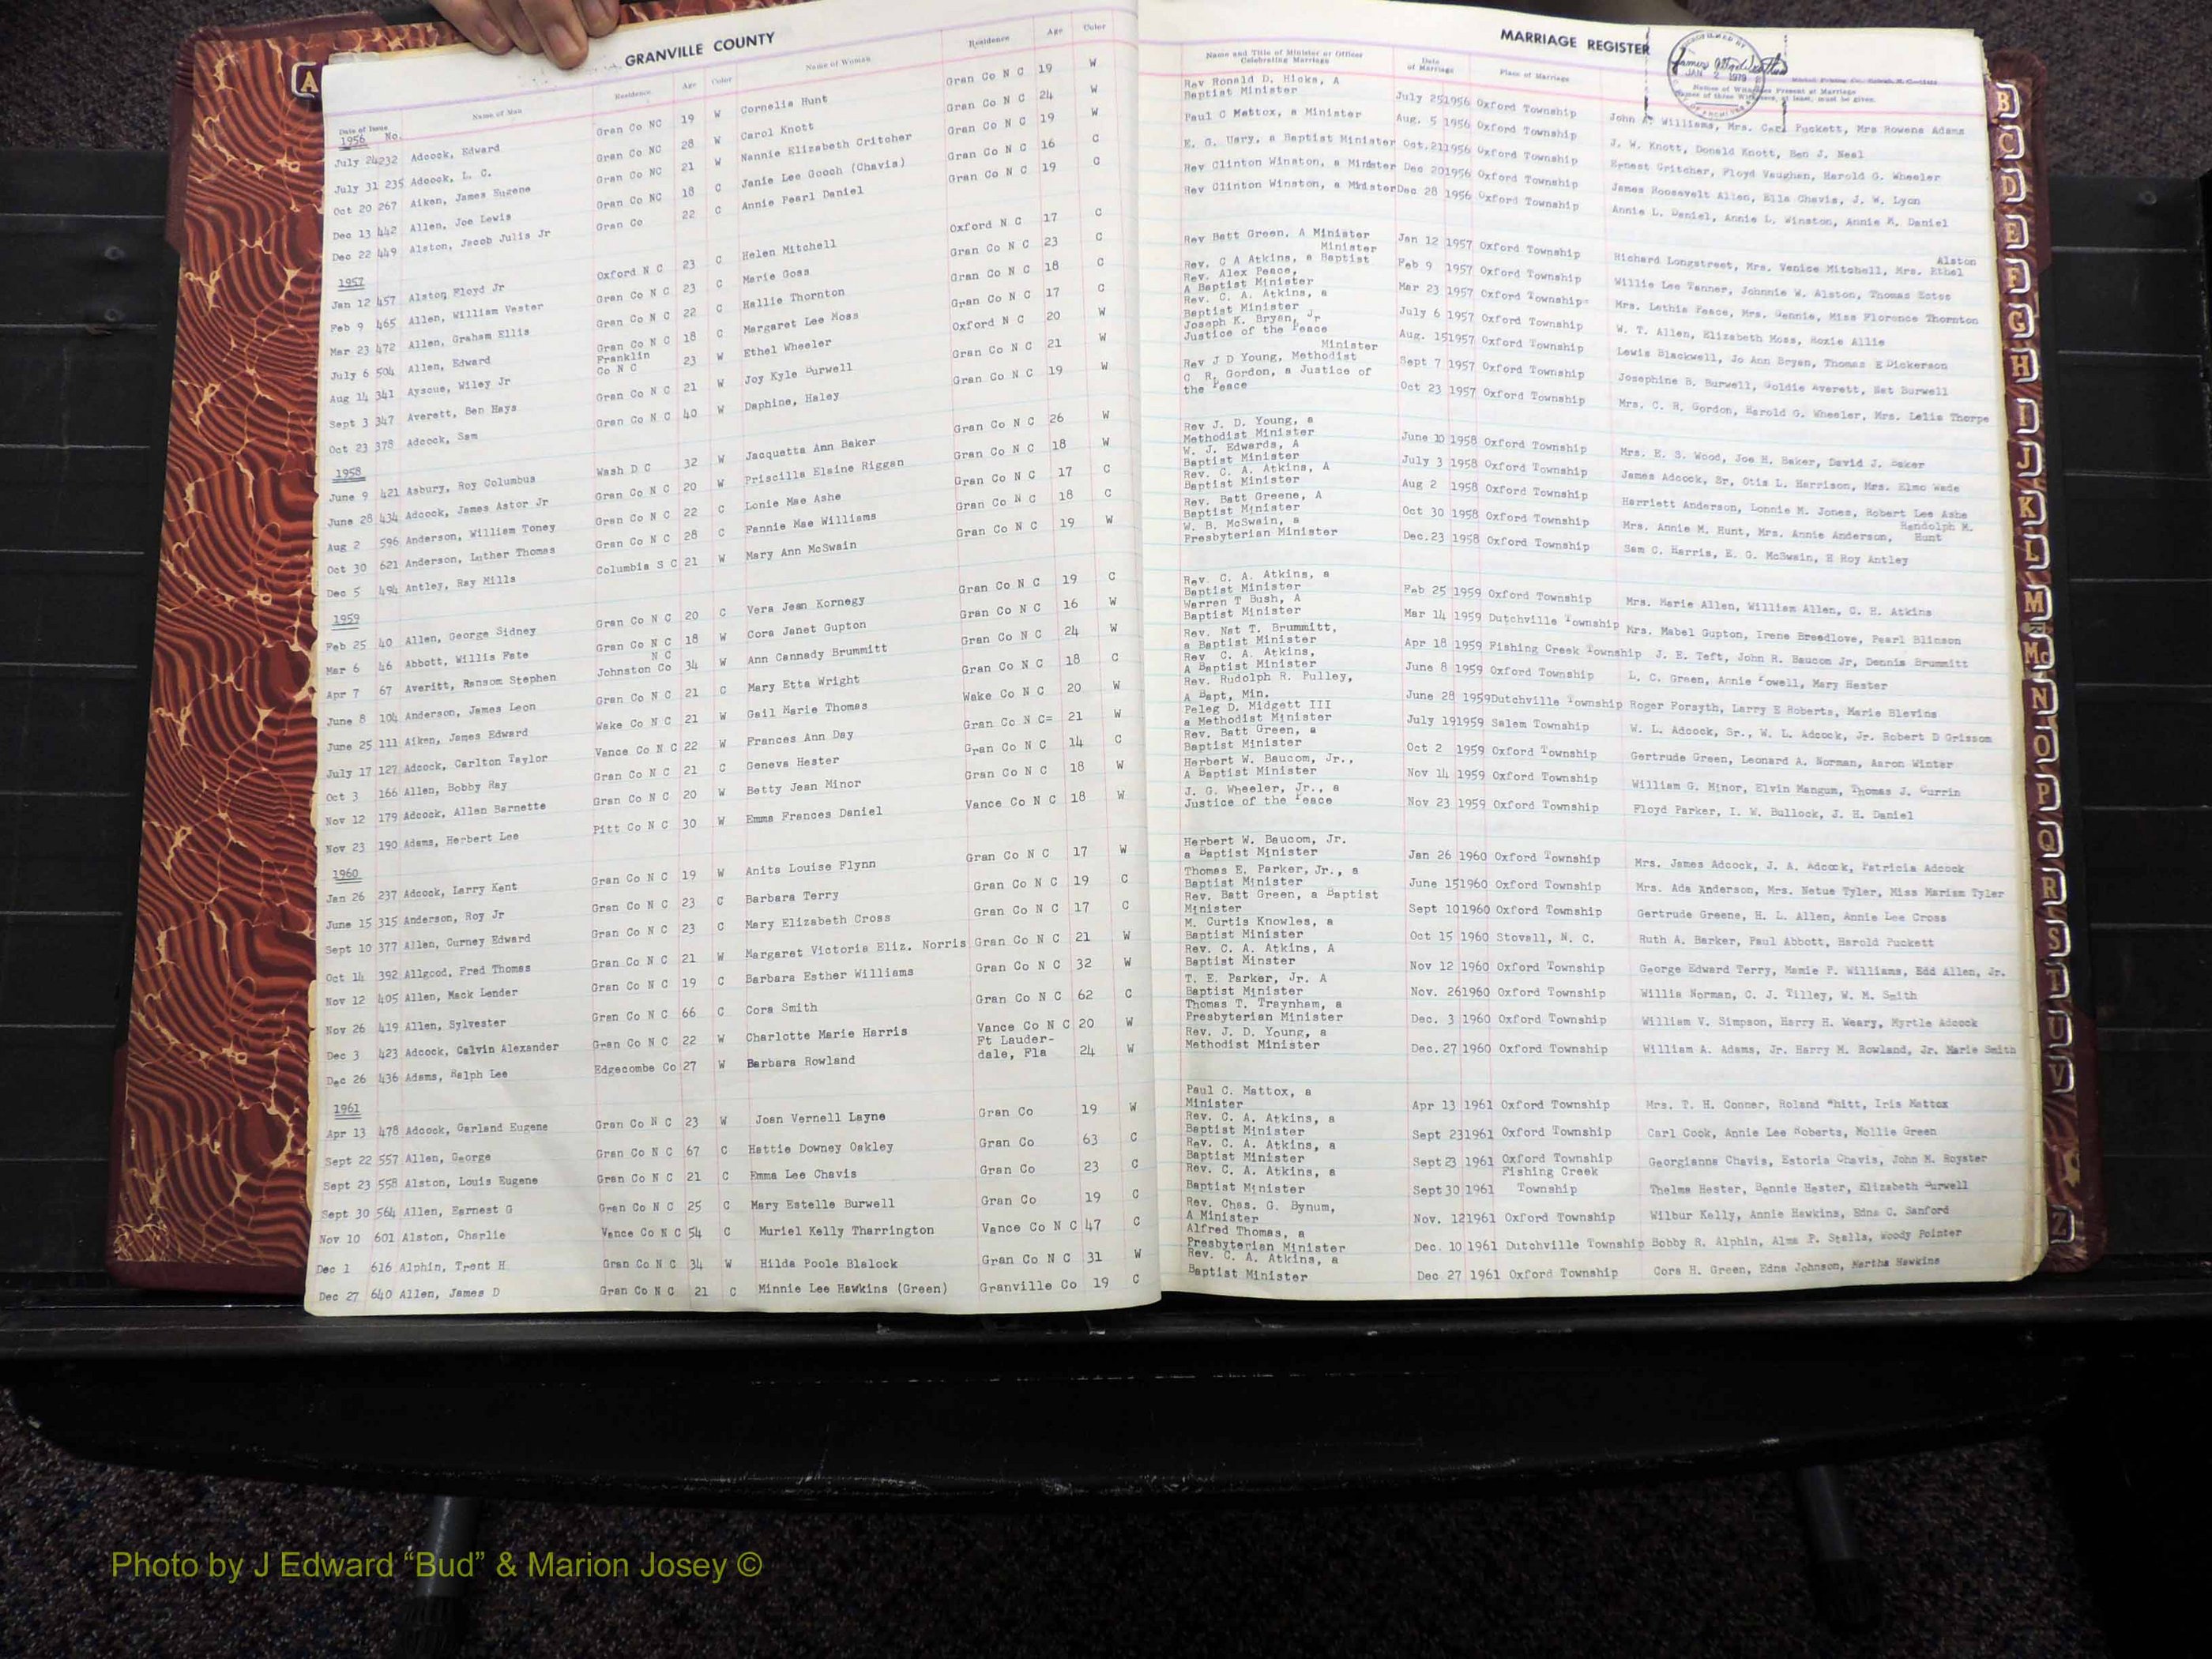 GRANVILLE COUNTY
MARRIAGE REGISTER
Date of Issue No. Name of Man Residence Age Color Name of Woman Residence Age Color Name and Title of Minister or Officer Celebrating Marriage Date of Marriage Place of Marriage
JAN 2 1979
1956
July 24 232 Adcock, Edward Gran Co NC 19 W Cornelia Hunt Gran Co N C 19 W Rev Ronald D. Hicks, A Baptist Minister July 25 1956 Oxford Township John A. Williams, Mrs. Carl Puckett, Mrs Rowena Adams
July 31 235 Adcock, L. C. Gran Co NC 28 W Carol Knott Gran Co N C 24 W Paul C Mattox, a Minister Aug. 5 1956 Oxford Township J. W. Knott, Donald Knott, Ben J. Neal
Oct 20 267 Aiken, James Eugene Gran Co NC 21 W Nannie Elizabeth Critcher Gran Co N C 19 W E. G. Usry, a Baptist Minister Oct.21 1956 Oxford Township Ernest Critcher, Floyd Vaughan, Harold G. Wheeler
Dec 13 442 Allen, Joe Lewis Gran Co NC 18 C Janie Lee Gooch (Chavis) Gran Co N C 16 C Rev Clinton Winston, a Minister Dec 20 1956 Oxford Township James Roosevelt Allen, Ella Chavis, J. W. Lyon
Dec 22 449 Alston, Jacob Julis Jr Gran Co 22 C Annie Pearl Daniel Gran Co N C 19 C Rev Clinton Winston, a Minister Dec 28 1956 Oxford Township Annie L. Daniel, Annie L. Winston, Annie M. Daniel
1957
Jan 12 457 Alston, Floyd Jr Oxford N C 23 C Helen Mitchell Oxford N C 17 C Rev Batt Green, A Minister Jan 12 1957 Oxford Township Richard Longstreet, Mrs. Venice Mitchell, Mrs. Ethel Alston
Feb 9 465 Allen, William Vester Gran Co N C 23 C Marie Goss Gran Co N C 23 C Rev. C A Atkins, a Baptist Minister Feb 9 1957 Oxford Township Willie Lee Tanner, Johnnie W. Alston, Thomas Estes
Mar 23 472 Allen, Graham Ellis Gran Co N C 22 C Hallie Thornton Gran Co N C 18 C Rev. Alex Peace, A Baptist Minister Mar 23 1957 Oxford Township Mrs. Lethia Peace, Mrs. Gennie, Miss Florence Thornton
July 6 504 Allen, Edward Gran Co N C 18 C Margaret Lee Moss Gran Co N C 17 C Rev. C. A. Atkins, a Baptist Minister July 6 1957 Oxford Township W. T. Allen, Elizabeth Moss, Roxie Allie
Aug 14 341 Ayscue, Wiley Jr Franklin Co N C 23 W Ethel Wheeler Oxford N C 20 W Joseph K. Bryan, Jr Justice of the Peace Aug. 15 1957 Oxford Township Lewis Blackwell, Jo Ann Bryan, Thomas E Dickerson
Sept 3 347 Averett, Ben Hays Gran Co N C 21 W Joy Kyle Burwell Gran Co N C 21 W Rev J D Young, Methodist Minister Sept 7 1957 Oxford Township Josephine B. Burwell, Goldie Averett, Nat Burwell
Oct 23 378 Adcock, Sam Gran Co N C 40 W Daphine, Haley Gran Co N C 19 W C. R. Gordon, a Justice of the Peace Oct 23 1957 Oxford Township Mrs. C. R. Gordon, Harold G. Wheeler, Mrs. Lelia Thorpe
1958
June 9 421 Asbury, Roy Columbus Wash D C 32 W Jacquetta Ann Baker Gran Co N C 26 W Rev J. D. Young, a Methodist Minister June 10 1958 Oxford Township Mrs. E. S. Wood, Joe H. Baker, David J. Baker
June 28 434 Adcock, James Astor Jr Gran Co N C 20 W Priscilla Elaine Riggan Gran Co N C 18 W W. J. Edwards, A Baptist Minister July 3 1958 Oxford Township James Adcock, Sr, Otis L. Harrison, Mrs. Elmo Wade
Aug 2 596 Anderson, William Toney Gran Co N C 22 C Lonie Mae Ashe Gran Co N C 17 C Rev. C. A. Atkins, A Baptist Minister Aug 2 1958 Oxford Township Harriett Anderson, Lonnie M. Jones, Robert Lee Ashe
Oct 30 621 Anderson, Luther Thomas Gran Co N C 28 C Fannie Mae Williams Gran Co N C 18 C Rev. Batt Greene, A Baptist Minister Oct 30 1958 Oxford Township Mrs. Annie M. Hunt, Mrs. Annie Anderson, Randolph M. Hunt
Dec 5 494 Antley, Ray Mills Columbia S C 21 W Mary Ann McSwain Gran Co N C 19 W W. B. McSwain, a Presbyterian Minister Dec.23 1958 Oxford Township Sam C. Harris, E. G. McSwain, H Roy Antley
1959
Feb 25 40 Allen, George Sidney Gran Co N C 20 C Vera Jean Kornegy Gran Co N C 19 C Rev. C. A. Atkins, a Baptist Minister Feb 25 1959 Oxford Township Mrs. Marie Allen, William Allen, C. E. Atkins
Mar 6 46 Abbott, Willis Fate Gran Co N C 18 W Cora Janet Gupton Gran Co N C 16 W Warren T Bush, A Baptist Minister Mar 14 1959 Dutchville Township Mrs. Mabel Gupton, Irene Breedlove, Pearl Blinson
Apr 7 67 Averitt, Ransom Stephen N C Johnston Co 34 W Ann Cannady Brummitt Gran Co N C 24 W Rev. Nat T. Brummitt, a Baptist Minister Apr 18 1959 Fishing Creek Township J. E. Teft, John R. Baucom Jr, Dennis Brummitt
June 8 104 Anderson, James Leon Gran Co N C 21 C Mary Etta Wright Gran Co N C 18 C Rev. C. A. Atkins, A Baptist Minister June 8 1959 Oxford Township L. C. Green, Annie Powell, Mary Hester
June 25 111 Aiken, James Edward Wake Co N C 21 W Gail Marie Thomas Wake Co N C 20 W Rev. Rudolph R. Pulley, A Bapt, Min. June 28 1959 Dutchville Township Roger Forsyth, Larry E Roberts, Marie Blevins
July 17 127 Adcock, Carlton Taylor Vance Co N C 22 W Frances Ann Day Gran Co N C= 21 W Peleg D. Midgett III a Methodist Minister July 19 1959 Salem Township W. L. Adcock, Sr., W. L. Adcock, Jr. Robert D Grissom
Oct 3 166 Allen, Bobby Ray Gran Co N C 21 C Geneva Hester Gran Co N C 14 C Rev. Batt Green, a Baptist Minister Oct 2 1959 Oxford Township Gertrude Green, Leonard A. Norman, Aaron Winter
Nov 12 179 Adcock, Allen Barnette Gran Co N C 20 W Betty Jean Minor Gran Co N C 18 W Herbert W. Baucom, Jr., A Baptist Minister Nov 14 1959 Oxford Township William G. Minor, Elvin Mangum, Thomas J. Currin
Nov 23 190 Adams, Herbert Lee Pitt Co N C 30 W Emma Frances Daniel Vance Co N C 18 W J. G. Wheeler, Jr., a Justice of the Peace Nov 23 1959 Oxford Township Floyd Parker, I. W. Bullock, J. H. Daniel
1960
Jan 26 237 Adcock, Larry Kent Gran Co N C 19 W Anita Louise Flynn Gran Co N C 17 W Herbert W. Baucom, Jr. a Baptist Minister Jan 26 1960 Oxford Township Mrs. James Adcock, J. A. Adcock, Patricia Adcock
June 15 315 Anderson, Roy Jr Gran Co N C 23 C Barbara Terry Gran Co N C 19 C Thomas E. Parker, Jr., a Baptist Minister June 15 1960 Oxford Township Mrs. Ada Anderson, Mrs. Netue Tyler, Miss Mariam Tyler
Sept 10 377 Allen, Curney Edward Gran Co N C 23 C Mary Elizabeth Cross Gran Co N C 17 C Rev. Batt Green, a Baptist Minister Sept 10 1960 Oxford Township Gertrude Greene, H. L. Allen, Annie Lee Cross
Oct 14 392 Allgood, Fred Thomas Gran Co N C 21 W Margaret Victoria Eliz. Norris Gran Co N C 21 W M. Curtis Knowles, a Baptist Minister Oct 15 1960 Stovall, N. C. Ruth A. Barker, Paul Abbott, Harold Puckett
Nov 12 405 Allen, Mack Lender Gran Co N C 19 C Barbara Esther Williams Gran Co N C 32 W Rev. C. A. Atkins, A Baptist Minster Nov 12 1960 Oxford Township George Edward Terry, Mamie P. Williams, Edd Allen, Jr.
Nov 26 419 Allen, Sylvester Gran Co N C 66 C Cora Smith Gran Co N C 62 C T. E. Parker, Jr. A Baptist Minister Nov. 26 1960 Oxford Township Willia Norman, C. J. Tilley, W. M. Smith
Dec 3 423 Adcock, Calvin Alexander Gran Co N C 22 W Charlotte Marie Harris Vance Co N C 20 W Thomas T. Traynham, a Presbyterian Minister Dec. 3 1960 Oxford Township William V. Simpson, Harry H. Weary, Myrtle Adcock
Dec 26 436 Adams, Ralph Lee Edgecombe Co 27 W Barbara Rowland Ft Lauder-dale, Fla 24 W Rev. J. D. Young, a Methodist Minister Dec. 27 1960 Oxford Township William A. Adams, Jr. Harry M. Rowland, Jr. Marie Smith
1961
Apr 13 478 Adcock, Garland Eugene Gran Co N C 23 W Joan Vernell Layne Gran Co 19 W Paul C. Mattox, a Minister Apr 13 1961 Oxford Township Mrs. T. H. Conner, Roland "hitt, Iris Mattox
Sept 22 557 Allen, George Gran Co N C 67 C Hattie Downey Oakley Gran Co 63 C Rev. C. A. Atkins, a Baptist Minister Sept 23 1961 Oxford Township Carl Cook, Annie Lee Roberts, Mollie Green
Sept 23 558 Alston, Louis Eugene Gran Co N C 21 C Emma Lee Chavis Gran Co 23 C Rev. C. A. Atkins, a Baptist Minister Sept 23 1961 Oxford Township Georgianna Chavis, Estoria Chavis, John M. Royster
Sept 30 564 Allen, Earnest G Gran Co N C 25 C Mary Estelle Burwell Gran Co 19 C Rev. C. A. Atkins, a Baptist Minister Sept 30 1961 Fishing Creek Township Thelma Hester, Bennie Hester, Elizabeth Burwell
Nov 10 601 Alston, Charlie Vance Co N C 54 C Muriel Kelly Tharrington Vance Co N C 47 C Rev. Chas. G. Bynum, A Minister Nov. 12 1961 Oxford Township Wilbur Kelly, Annie Hawkins, Edna C. Sanford
Dec 1 616 Alphin, Trent H Gran Co N C 34 W Hilda Poole Blalock Gran Co N C 31 W Alfred Thomas, a Presbyterian Minister Dec. 10 1961 Dutchville Township Bobby R. Alphin, Alma P. Stalls, Woody Pointer
Dec 27 640 Allen, James D Gran Co N C 21 C Minnie Lee Hawkins (Green) Granville Co 19 C Rev. C. A. Atkins, a Baptist Minister Dec 27 1961 Oxford Township Cora H. Green, Edna Johnson, Martha Hawkins
A
B
C
D
E
F
G
H
I
J
K
L
M
Mc
N
O
P
Q
R
S
T
U
V
Z
Photo by J Edward “Bud” & Marion Josey ©